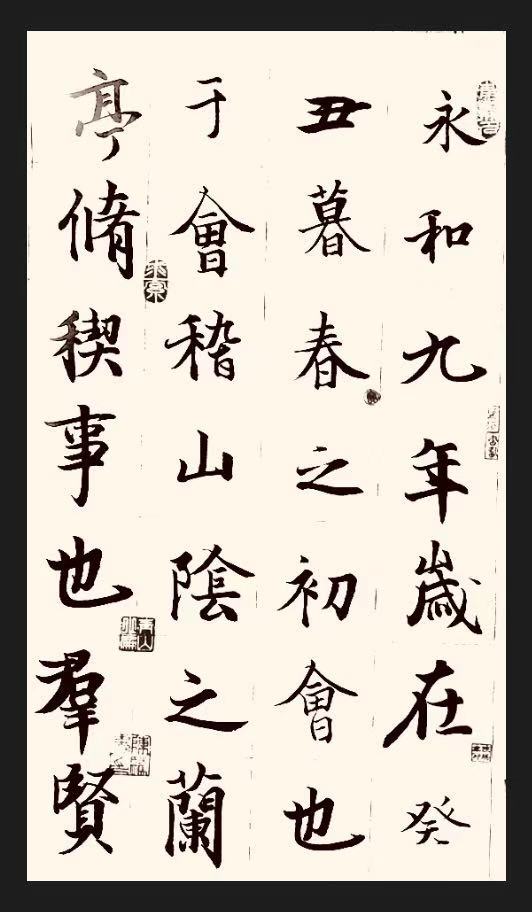 永和九年歲在癸
丑暮春之初會也
于會稽山陰之蘭
亭脩稧事也羣賢